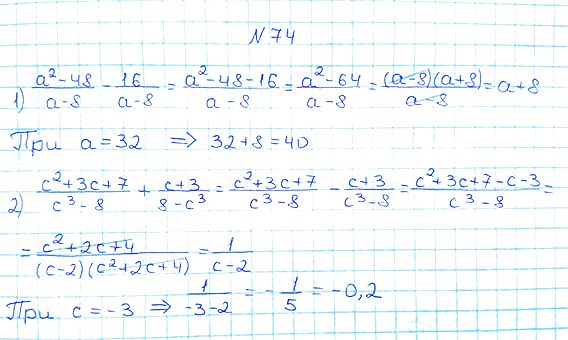 N 74
1) (a²-48)/(a-8) - 16/(a-8) = (a²-48-16)/(a-8) = (a²-64)/(a-8) = ((a-8)(a+8))/(a-8) = a+8
При a=32 ⇒ 32+8=40
2) (c²+3c+7)/(c³-8) + (c+3)/(8-c³) = (c²+3c+7)/(c³-8) - (c+3)/(c³-8) = (c²+3c+7-c-3)/(c³-8) =
= (c²+2c+4)/((c-2)(c²+2c+4)) = 1/(c-2)
При c=-3 ⇒ 1/(-3-2) = -1/5 = -0,2